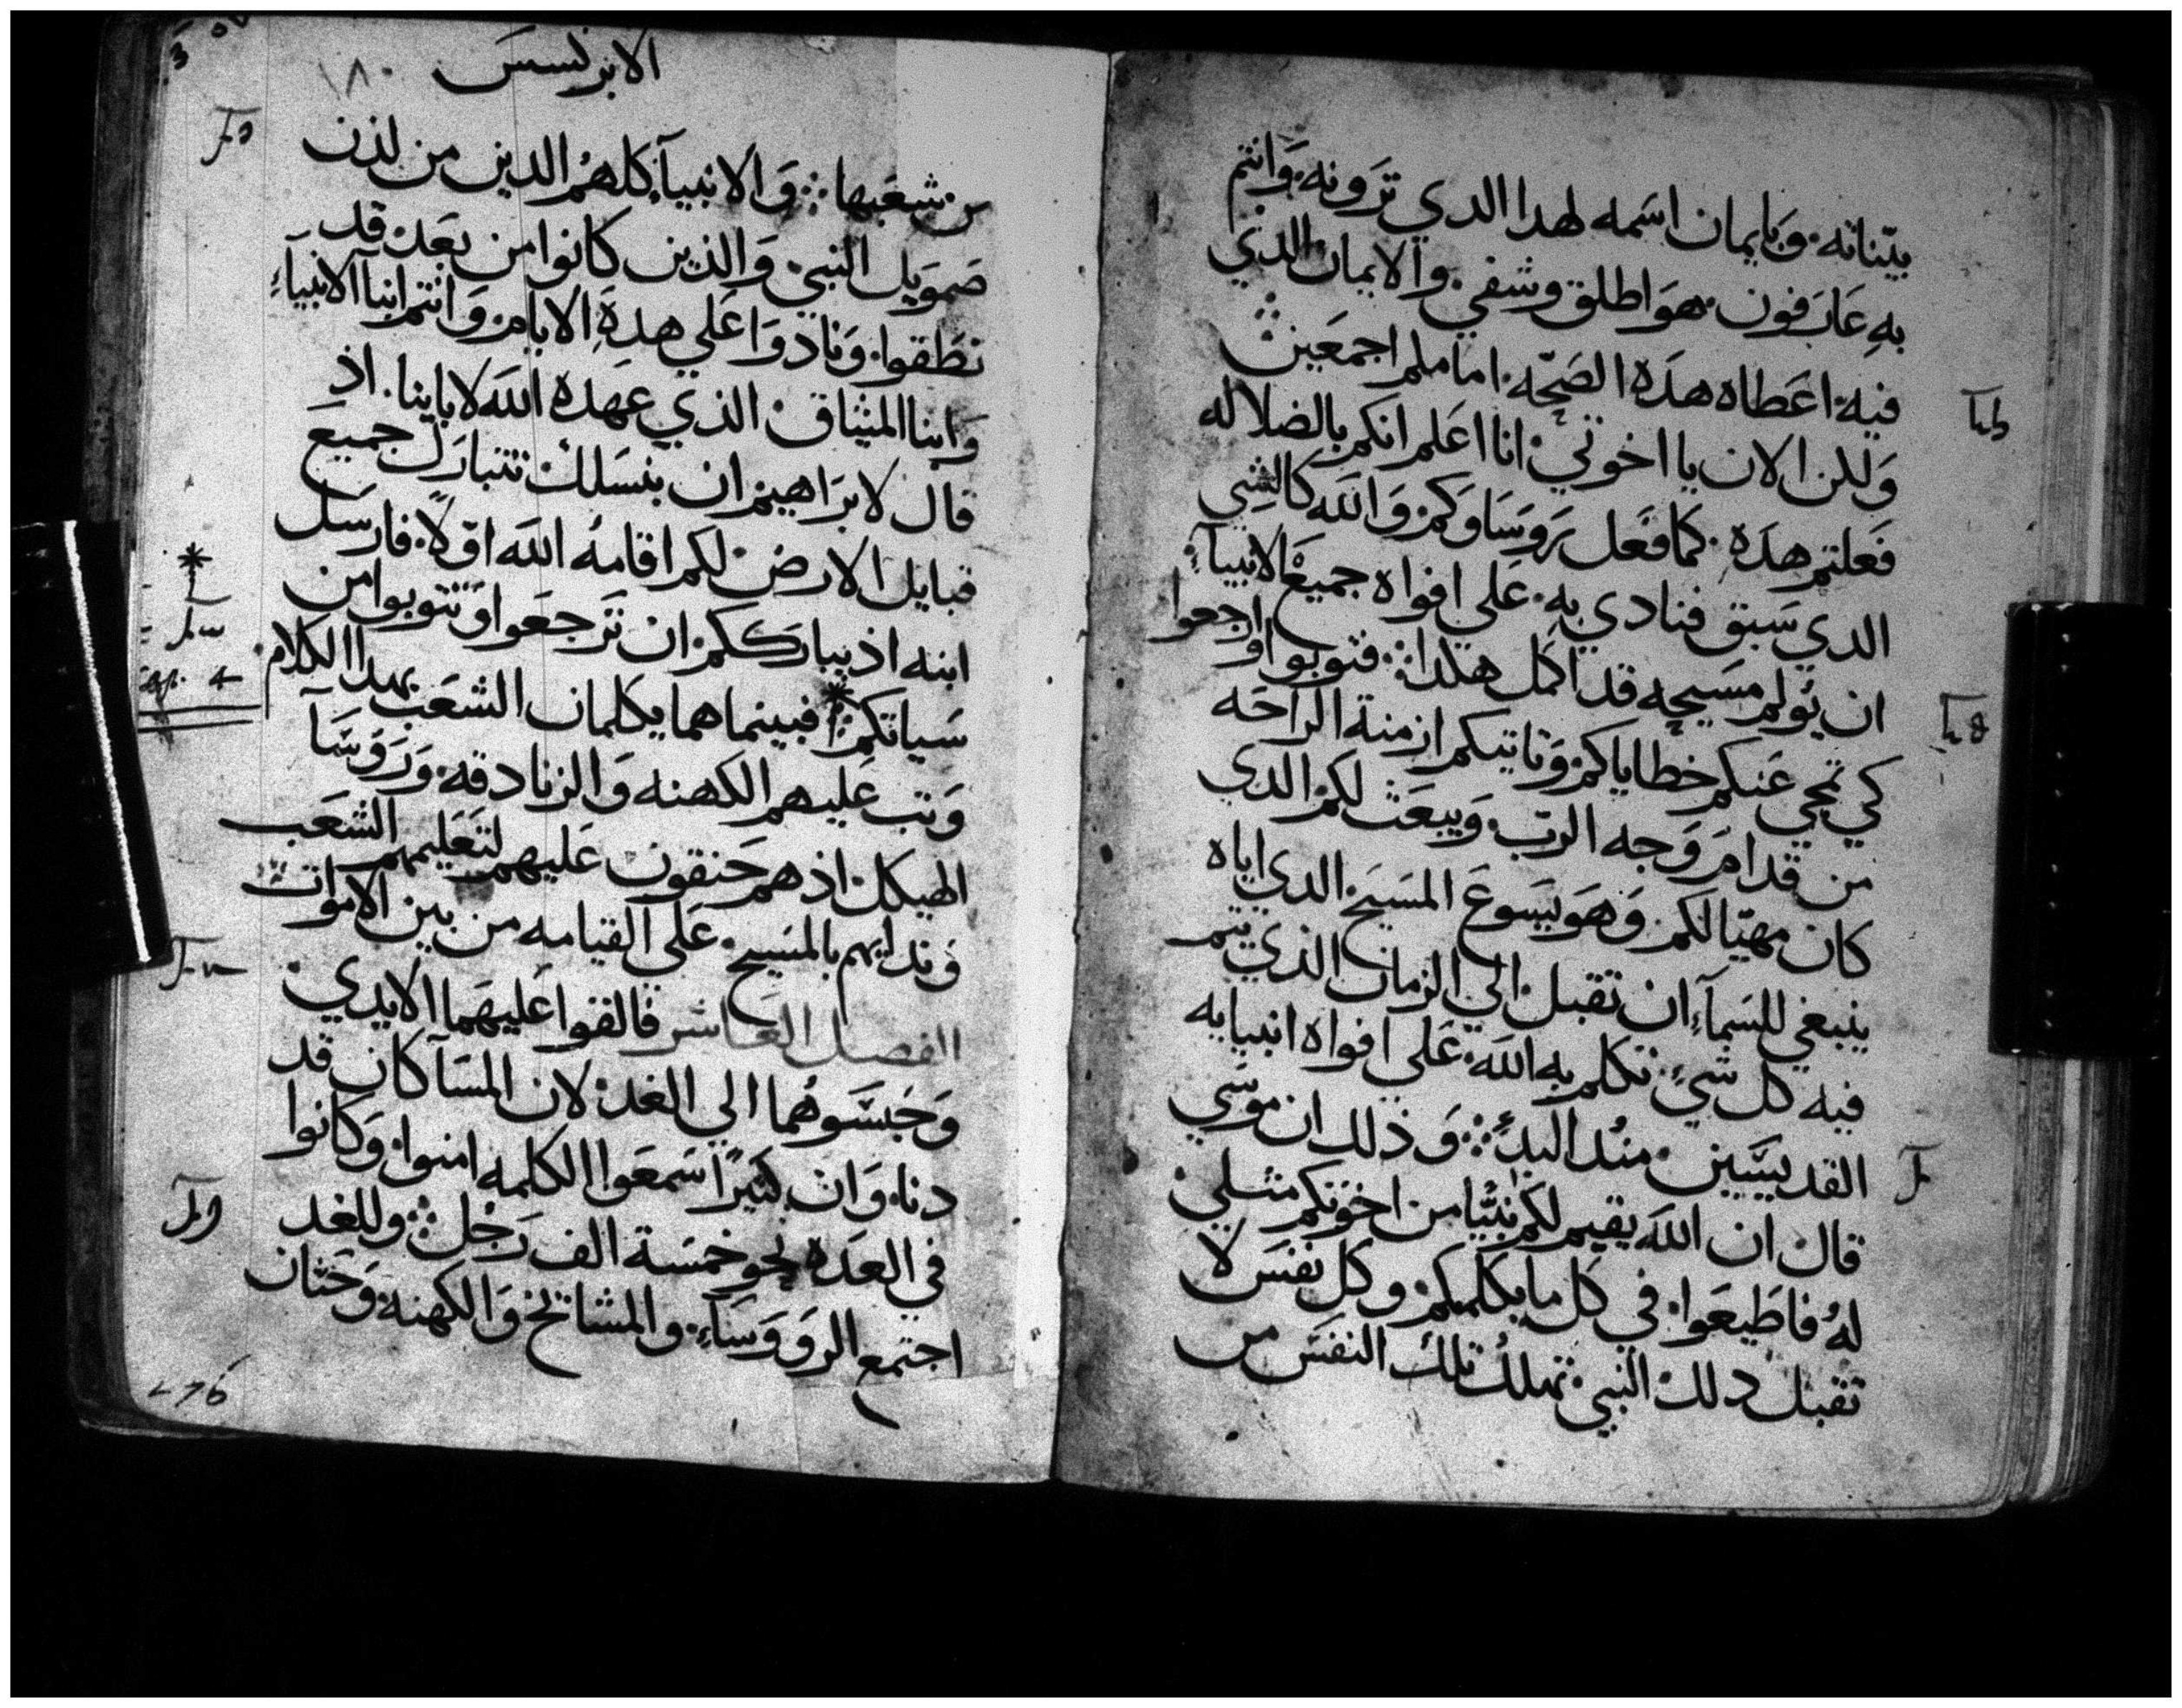 بيّناته. وَبايمان اسَمه لهدا الدي تَرَونه. وَانتم
بهِ عَارَفون. هوَ اطلق وشفي. والايمان الذي
فيه. اعَطاه هدَه الصَحّه. امامكم اجمعَين
وَلكن الان يا اخوتي. انا اعَلم انكم بالضلاله
فعَلتم هدَهِ. كما فعَل رَوسَاوَكم. وَالله كالشي
الدي سَبق فنادي بهِ. عَلي افواه جميعَ الانبيآءِ.
ان يُولم مسَيحه قد اكمل هكدا. فتوبوا وَارجعوا
كي تمحي عَنكم خطاياكم. وَتاتيكم ازمنة الرَاحَه
من قدام وَجه الربّ. وَيبعَث لكم الدي
كان مهيّا لكم. وَهوَ يسَوعَ المسَيح. الدي اياه
ينبغي للسَمآءِ ان تقبل. الي الزمان الذي يتم
فيه كل شيءٍ. تكلم به الله. عَلي افواه انبيايه
القديسَيين. مند البدءِ. وَذلك ان موسَي
قال ان الله يقيم لكم نبيّا من اخوتكم مثلي.
لهُ فاطيعَوا. في كل ما يكلمكم. وكل نفسَ لا
تقبل دلك النبي. تهلك تلك النفسَ من
الابركسيس ١٨٠
من شعَبها. وَالانبيآ. كلهُم الدين من لذن
صَموَيل النبي. وَالذين كانوا من بعَد. قد
نطَقوا. وَنادوَا عَلي هدهِ الايام. وَانتم ابنا الانبيآءِ
وَابنا الميثاق. الذي عهده الله لاباينا. اذ
قال لابرَاهيم. ان بنسَلك تتبارَك جميعَ
قبايل الارض. لكم اقامهُ الله اوّلاً. فارسَل
ابنه اذ يبارَككم. ان ترَجعَوا وَتتوبوا من
سَياتكم. فبينما هما يكلمان الشعَب بهدا الكلام
وَتب عَليهم الكهنه وَالزنادقه. وَرَوَسَآ
الهيكل. اذ هم حَنقون عَليهم لتعَليمهم الشعَب
وَندايهم بالمسَيح. عَلي القيامه من بين الاموَات
الفصل العَاشر فالقوا عَليهمَا الايدي
وَحَبسَوهُما الي الغد. لان المسَآ كان قد
دنا. وَان كثيرًا سَمعَوا الكلمه امنوا. وَكانوا
في العَده نحو خمسَة الف رَجُل. وللغد
اجتمع الروَوَسَآءِ. والمشائخ وَالكهنه. وَحَنان